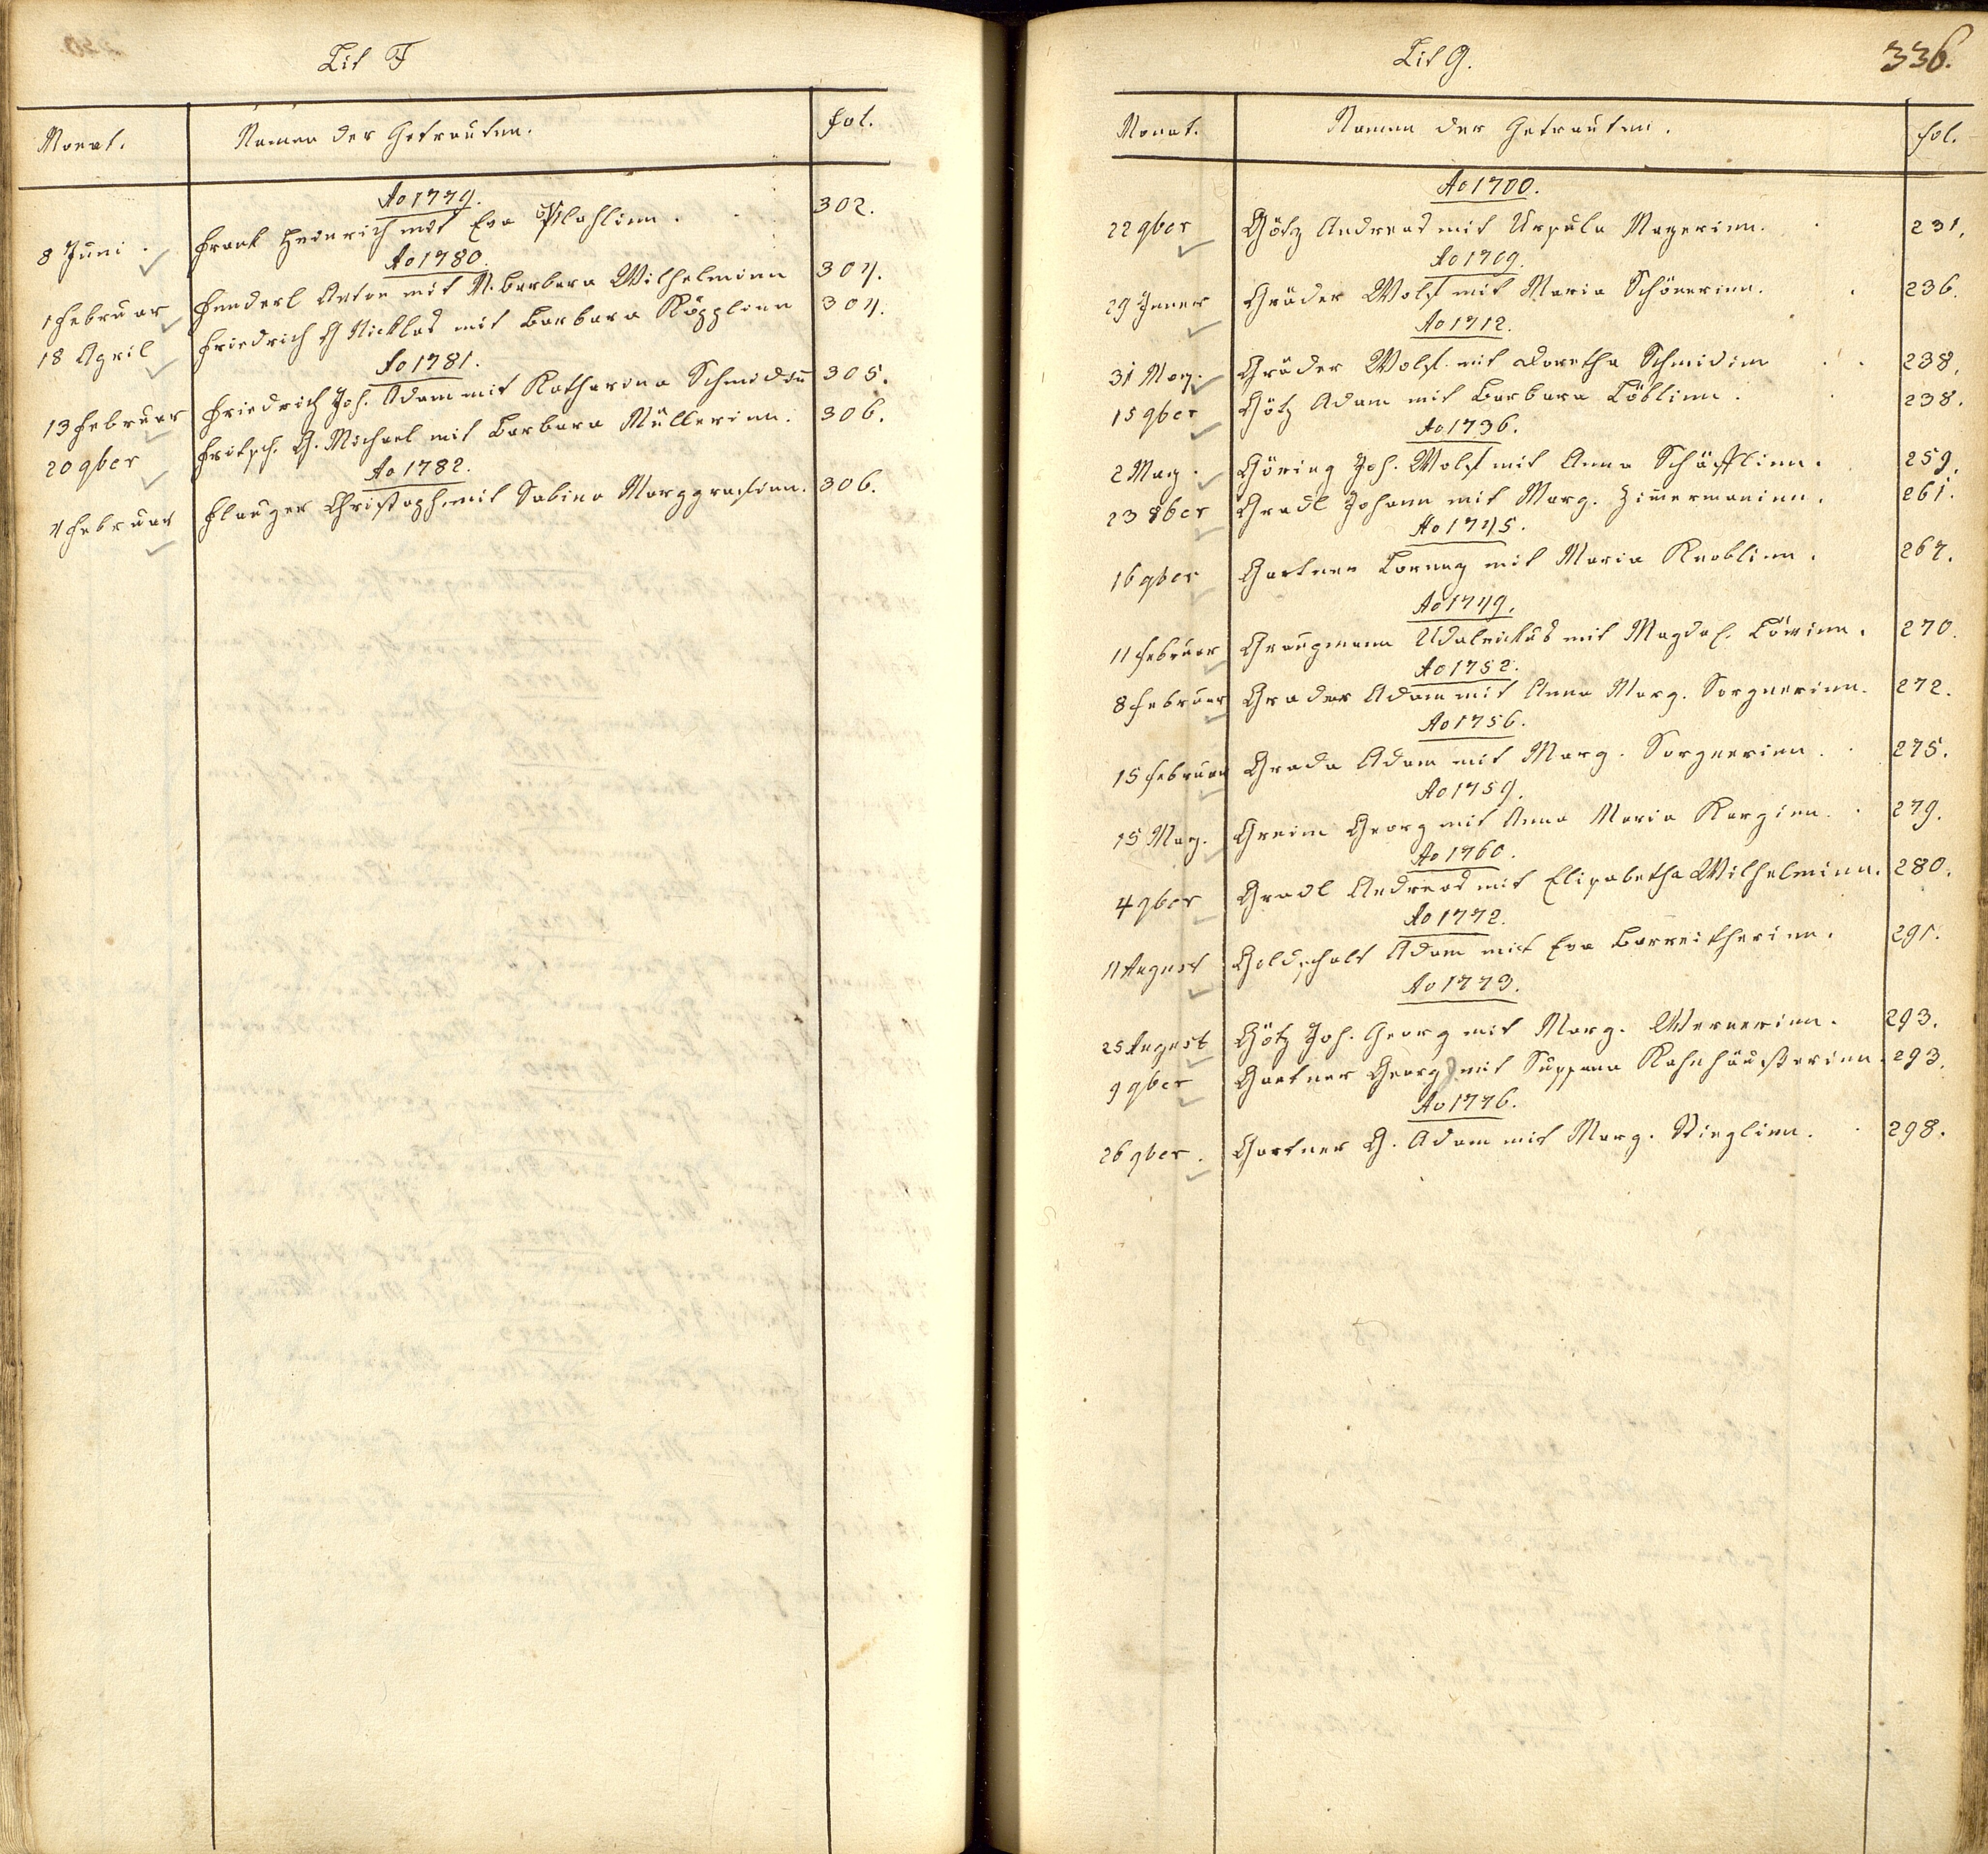 Lit F
Monat. Namen der Getrauten. fol.
Ao 1779.
8 Juni. Frank Heinrich mit Eva 302.
Ao 1780.
1 Februar Fenderl Anton mit M. Barbara Wilhelminn 304.
18 April Friedrich G Nicklas mit Barbara Köpplinn 304.
Ao 1781.
13 Februar Friedrich Joh. Adam mit Katharina Schmidin 305.
20 9ber Fritsch. G. Michael mit Barbara Müllerinn. 306.
Ao 1782.
4 Februar Flauger Christoph mit Sabina Marggrafinn. 306.
Lit G. 336.
Monat. Namen der Getrauten. fol.
Ao 1700.
22 9ber Götz Andreas mit Ursula Mayerinn. 231.
Ao 1709.
29 Jener Gräder Wolf mit Maria Schönerinn. 236.
Ao 1712.
31 May. Gräder Wolf mit Dorotha Schmidinn 238.
15 9ber Götz Adam mit Barbara Löblinn. 238.
Ao 1736.
2 May. Göring Joh. Wolf mit Anna Schäfflinn. 259.
23 8ber Gradl Johann mit Marg. Zimermaninn. 261.
Ao 1745.
16 9ber Gartner Lorenz mit Maria Knoblinn. 267.
Ao 1749.
11 Februar Graupmann Udalrickus mit Magdal. Löwinn. 270.
Ao 1752.
8 Februar Grader Adam mit Anna Marg. Sorgnerinn. 272.
Ao 1756.
15 Februar Grada Adam mit Marg. Sorgnerinn. 275.
Ao 1759.
15 May. Greim Georg mit Anna Maria Karginn. 279.
Ao 1760.
4 9ber Gradl Andreas mit Elisabetha Wilhelminn. 280.
Ao 1772.
11 August Goldschalt Adam mit Eva Barreitherinn. 291.
Ao 1773.
25 August Götz Joh. Georg mit Marg. Wernerinn. 293.
9 9ber Gartner Georg mit Susanna Kahnhäußerinn. 293.
Ao 1776.
26 9ber. Gartner G. Adam mit Marg. Stieglinn. 298.